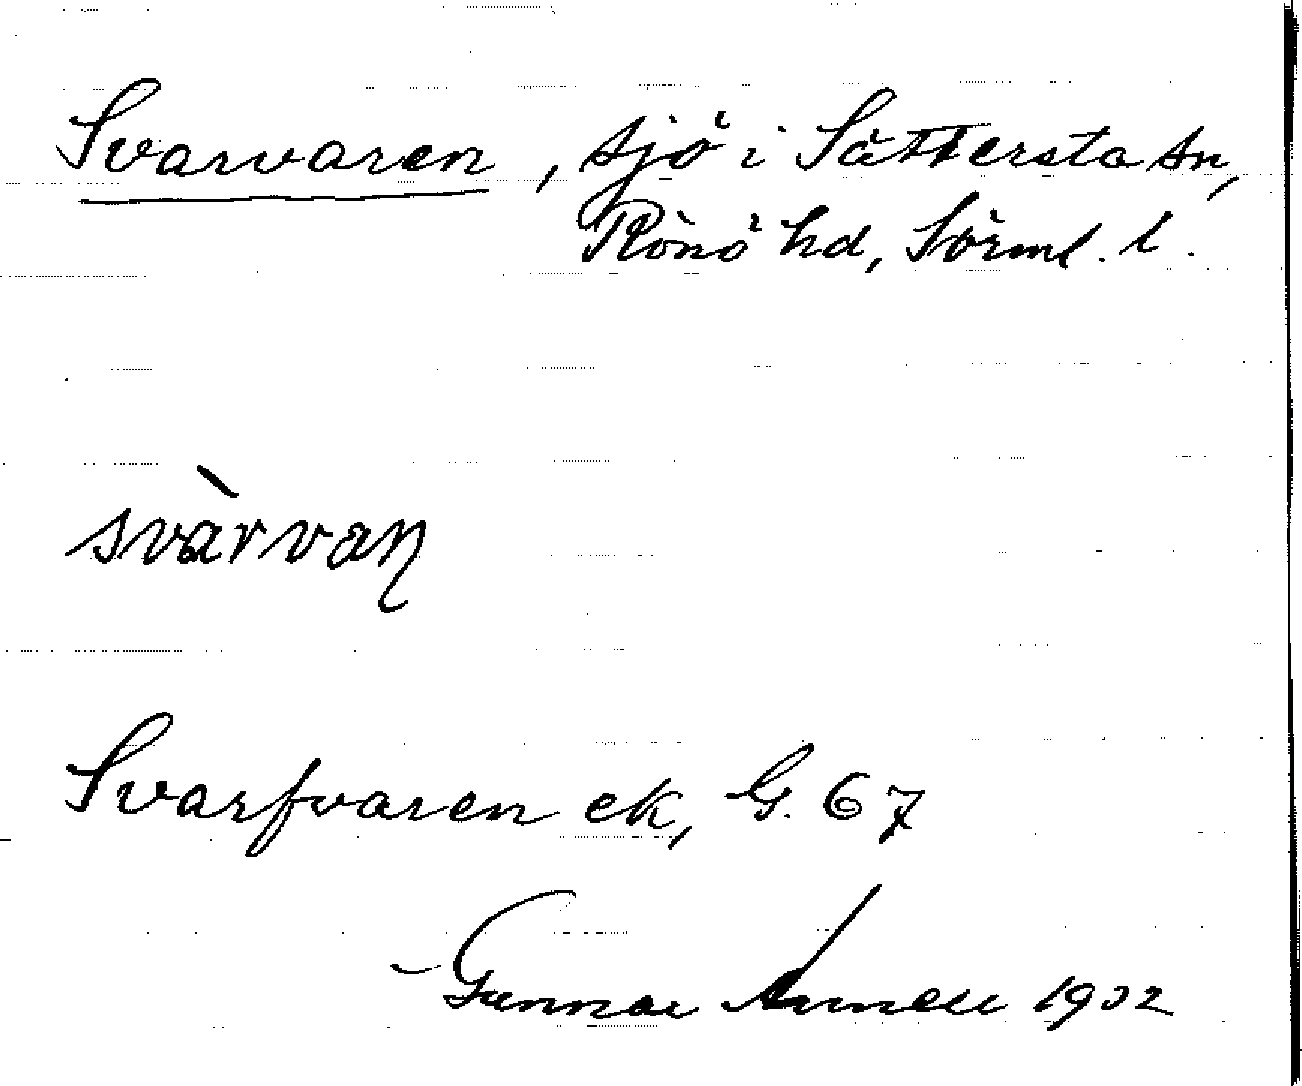 Svarvaren, sjö i Sättersta sn,
Rönö hd, Sörml. l.
svàrvaɳ
Svarfvaren ek, G. 67
Gunnar Arnell 1932